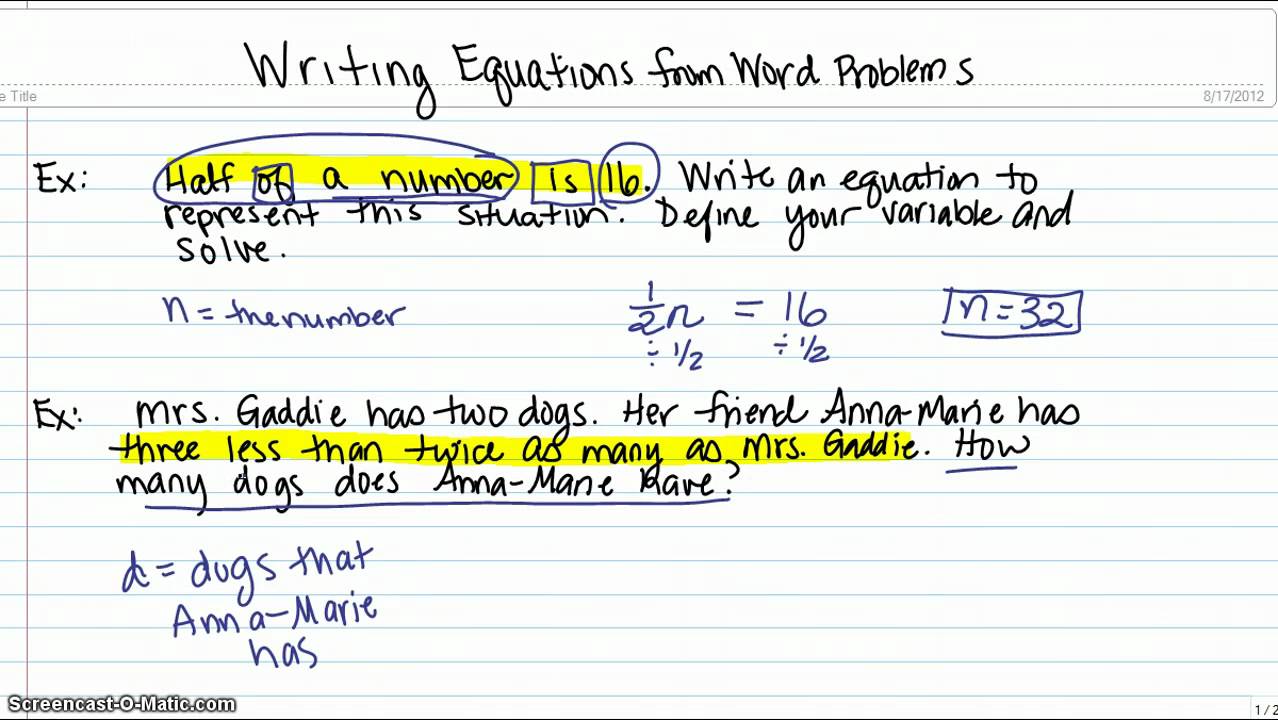 Writing Equations from Word Problems
e Title
8/17/2012
Ex: Half of a number is 16. Write an equation to
represent this situation. Define your variable and
solve.
n = the number 1/2 n = 16 n = 32
÷ 1/2 ÷ 1/2
Ex: Mrs. Gaddie has two dogs. Her friend Anna-Marie has
three less than twice as many as Mrs. Gaddie. How
many dogs does Anna-Marie have?
d = dogs that
Anna-Marie
has
Screencast-O-Matic.com
1/2